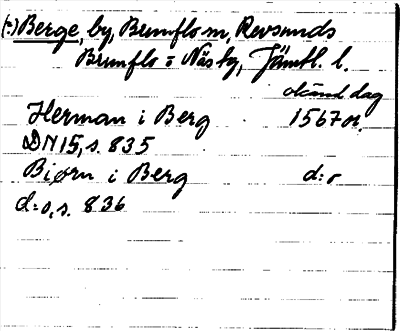 (=) Berge, by, Brunflo sn, Revsunds
Brunflo = Näs tg, Jämtl. l.
odaterad dag
Herman i Berg 1567 or.
DN 15, s. 835
Biørn i Berg d:o
d:o, s. 836